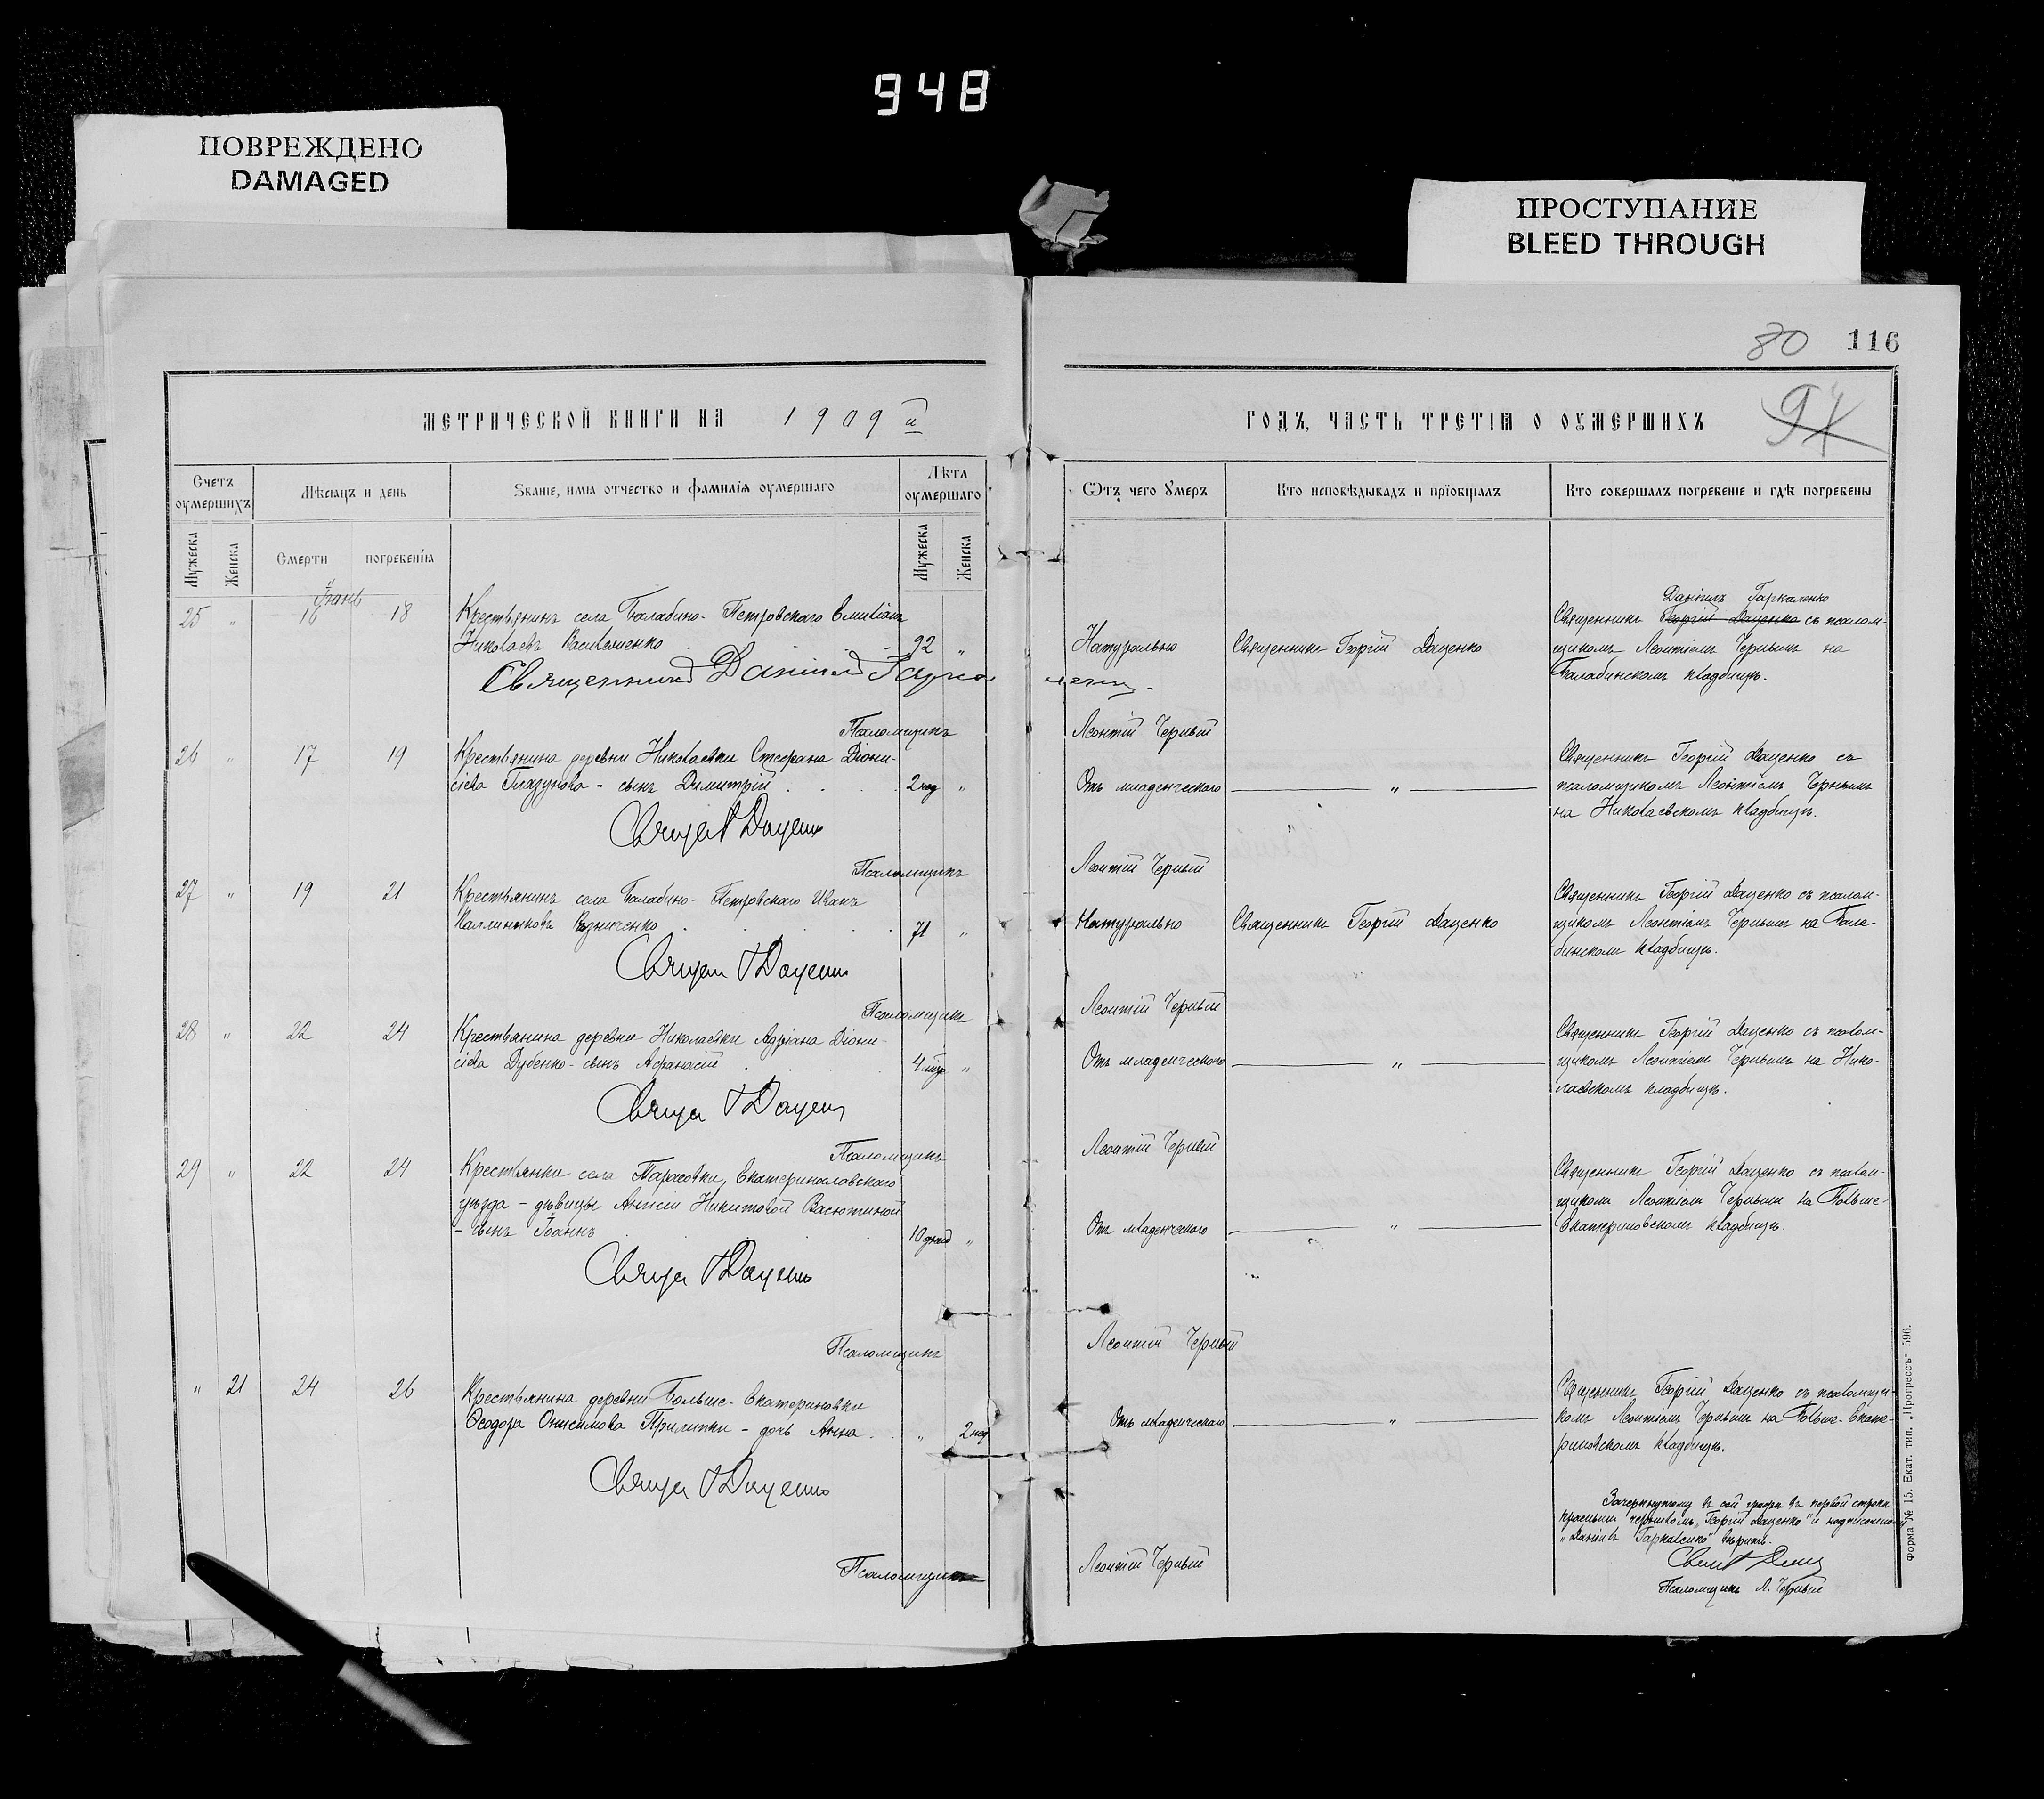 948
ПОВРЕЖДЕНО
DAMAGED
ПРОСТУПАНИЕ
BLEED THROUGH
80 116
97
МЕТРИЧЕСКОЙ КНИГИ НА 1909 й
ГОДЪ, ЧАСТЬ ТРЕТІѦ О ОУМЕРШИХЪ
Счетъ оумершихъ
Мѣсяцъ и день
Званіе, имѧ отчество и фамиліѧ оумершаго
Лѣта оумершаго
Ѿтъ чего умеръ
Кто исповѣдывалъ и пріобщалъ
Кто совершалъ погребеніе и гдѣ погребены
Мужеска
Женска
Смерти
погребеніѧ
Мужеска
Женска
25 " 16 18 Крестьянинъ села Балабино-Петровскаго Емиліанъ
Николаевъ Василенко 92 "
Натурально
Священникъ Георгій Даценко
Даніилъ Гаркаленко
Священникъ Георгій Даценко съ псалом-
щикомъ Леонтіемъ Чернымъ на
Балабинскомъ кладбищѣ.
Священникъ Даніилъ Гарка ленко.
Псаломщикъ Леонтій Черный
26 " 17 19 Крестьянина деревни Николаевки Стефана Діони-
сіева Глазунова - сынъ Димитрій 2 нед "
Отъ младенческаго "
Священникъ Георгій Даценко съ
псаломщикомъ Леонтіемъ Чернымъ
на Николаевскомъ кладбищѣ.
Священ Г Даценко
Псаломщикъ Леонтій Черный
27 " 19 21 Крестьянинъ села Балабино-Петровскаго Иванъ
Каллиниковъ Возниченко 71 "
Натурально
Священникъ Георгій Даценко
Священникъ Георгій Даценко съ псалом-
щикомъ Леонтіемъ Чернымъ на Бала-
бинскомъ кладбищѣ.
Священ Г Даценко
Псаломщикъ Леонтій Черный
28 " 22 24 Крестьянина деревни Николаевки Адріана Діони-
сіева Дубенко - сынъ Афанасій 4 мѣс "
Отъ младенческаго "
Священникъ Георгій Даценко съ псалом-
щикомъ Леонтіемъ Чернымъ на Нико-
лаевскомъ кладбищѣ.
Священ Г Даценко
Псаломщикъ Леонтій Черный
29 " 22 24 Крестьянки села Тарасовки, Екатеринославскаго
уѣзда - дѣвицы Анисіи Никитовой Васютиной
- сынъ Іоаннъ 10 дней "
Отъ младенческаго "
Священникъ Георгій Даценко съ псалом-
щикомъ Леонтіемъ Чернымъ на Больше-
Екатериновскомъ кладбищѣ.
Священ Г Даценко
Псаломщикъ Леонтій Черный
" 21 24 26 Крестьянина деревни Больше-Екатериновки
Ѳеодора Онисимова Прилипки - дочь Анна " 2 нед
Отъ младенческаго "
Священникъ Георгій Даценко съ псаломщи-
комъ Леонтіемъ Чернымъ на Больше-Екате-
риновскомъ кладбищѣ.
Священ Г Даценко
Зачеркнутому въ сей графѣ въ первой строкѣ
красными чернилами „Георгій Даценко" и надписанному
„Даніилъ Гаркаленко" вѣрить.
Псаломщикъ Л. Черный
Псаломщикъ Леонтій Черный
Форма № 15. Екат. тип. „Прогрессъ" 596.